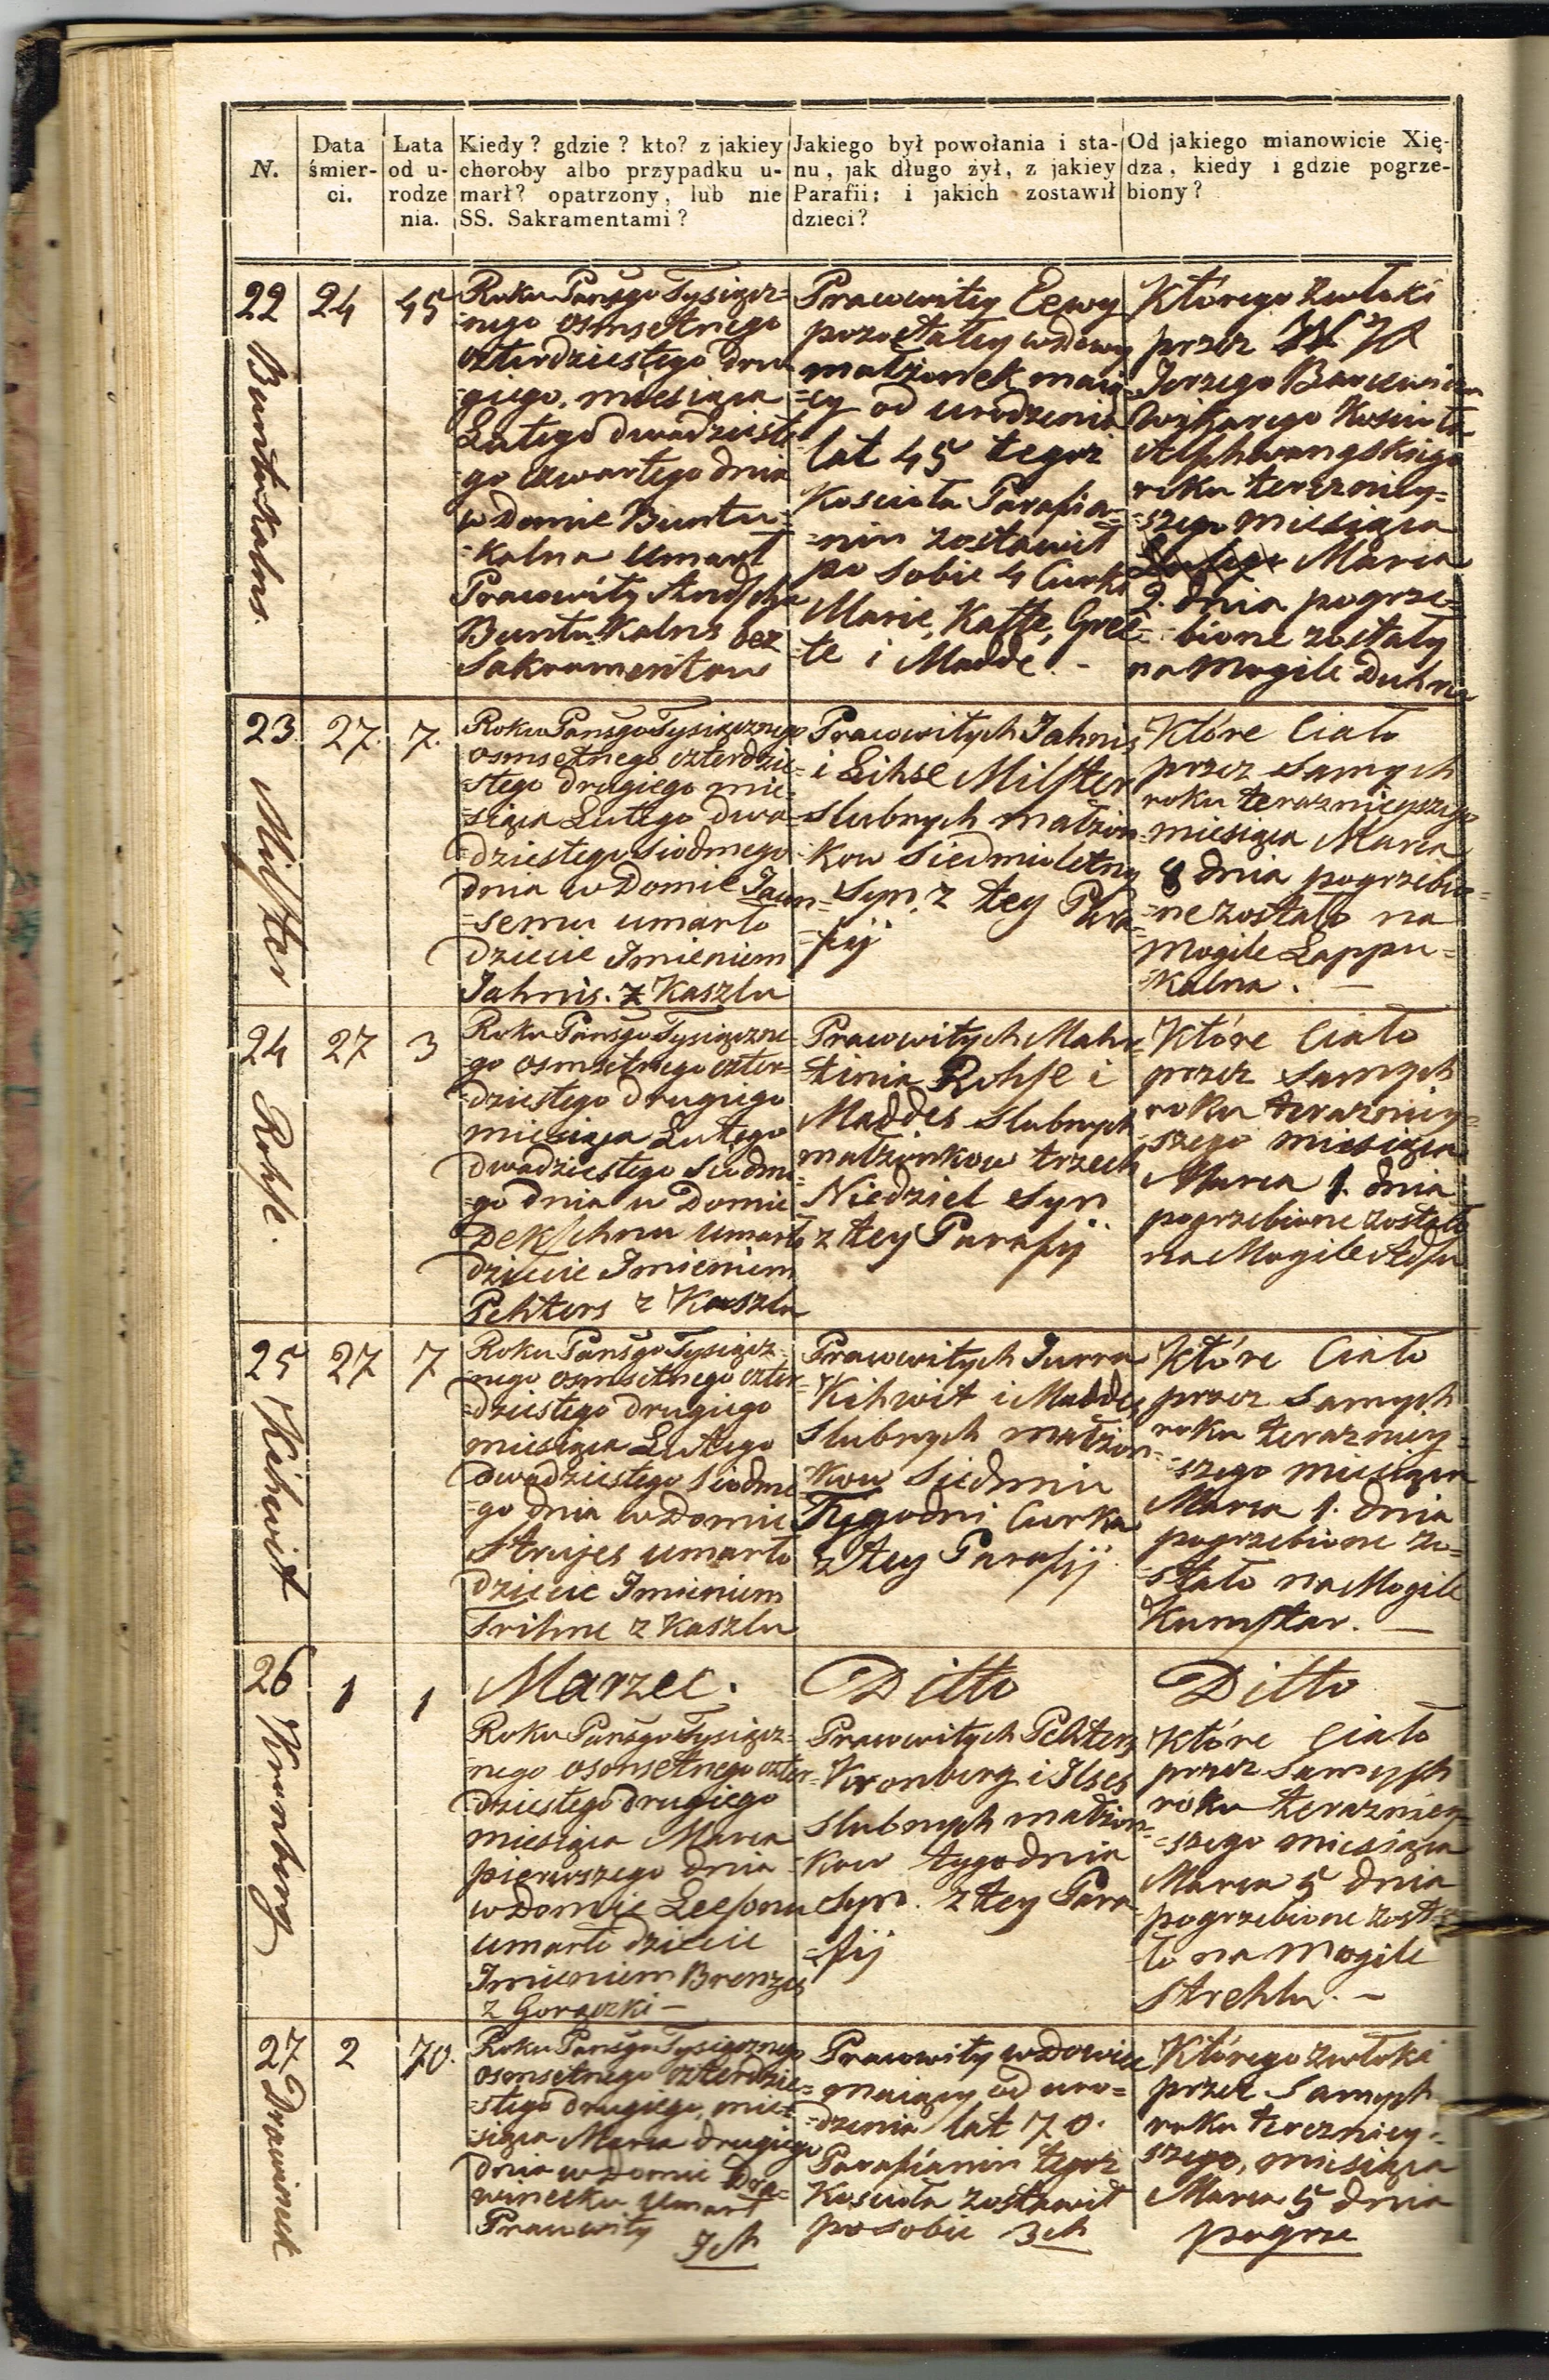 N.
Data
śmier-
ci.
Lata
od u-
rodze
nia.
Kiedy? gdzie? kto? z jakiey
choroby albo przypadku u-
marł? opatrzony, lub nie
SS. Sakramentami?
Jakiego był powołania i sta-
nu, jak długo żył, z jakiey
Parafii; i jakich zostawił
dzieci?
Od jakiego mianowicie Xię-
dza, kiedy i gdzie pogrze-
biony?
22
Buntukalns.
24
45
Roku Pańsgo Tysiącz=
=nego osmsetnego
czterdziestego dru
giego, miesiąca
Lutego dwadzieste
go czwartego dnia
w Domie Buntu=
=kalna umarł
Pracowity
Buntu-Kalns bez
Sakramentow
Pracowitey Eewy
pozostałey wdowy
małżonek maią
=cy od urodzenia
lat 45 tegoż
Kościoła Parafia=
=nin zostawił
po sobie 4 Curki
Marie, Katte, Gree
=te i Madde. -
Którego zwłoki
przez
Jerzego
Wikarego Kościoła
Alschwangskiego
roku teraźniey=
=szego miesiąca
Marca
2. dnia pogrze=
=bione zostały
na Mogile Duhna
23.
Milster
27.
7.
Roku Pańsgo Tysiącznego
osmsetnego czterdzie=
=stego drugiego mie=
=siąca Lutego dwa=
dziestego siodmego
dnia w Domie Jaun=
=semu umarło
dziecie Imieniem
Jahnis. z Kaszlu
Pracowitych Jahnis
i Lihse Milster
slubnych małżon=
kow siedmioletny
Syn. z tey Para=
=fij
Które Ciało
przez samych
roku teraznieyszego
miesiąca Marca
8 dnia pogrzebio=
=ne zostało na
Mogile Lappu=
=kalna. -
24
Rohse.
27
3
Roku Pańsgo Tysiączne
=go osmsetnego czter=
=dziestego drugiego
miesiąca Lutego
dwadziestego siodme=
=go dnia w Domie
Dekschnu umarło
dziecie Imieniem
Pehters z Kaszlu
Pracowitych Mahr=
=tinia Rohse i
Maddes slubnych
małżonkow trzech
Niedziel Syn
z tey Parafij
Które Ciało
przez samych
roku teraźniey=
=szego miesiąca
Marca 1. dnia
pogrzebione zostało
na Mogile
25
Kihwit
27
7
Roku Pańsgo Tysiącz=
=nego osmsetnego czter=
=dziestego drugiego
miesiąca Lutego
dwadziestego siodme
=go dnia w Domie
Strujes umarło
dziecie Imieniem
Trihne z Kaszlu
Pracowitych Jurra
Kihwit i Maddes
slubnych małżon=
=kow siedmiu
Tygodni Curka
z tey Parafij.
Które Ciało
przez samych
roku teraźniey=
=szego miesiąca
Marca 1. dnia
pogrzebione zo=
=stało na Mogile
Kunstar. -
26
Kronberg
1
1
Marzec.
Roku Pańsgo Tysiącz=
nego osmsetnego czter=
dziestego drugiego
miesiąca Marca
pierwszego dnia
w Domie Leelsonu
umarło dziecie
Imieniem Brenzis
z Gorączki -
Ditto
Pracowitych Pehters
Kronberg i Ilses
slubnych małżon=
=kow tygodnia
Syn. z tey Para
=fij
Ditto
Które Ciało
przez samych
roku teraźniey=
=szego miesiąca
Marca 5 dnia
pogrzebione zosta
ło na Mogile
Strehlu. -
27
Drawineek
2
70.
Roku Pańsgo Tysiącznego
osmsetnego czterdzie=
=stego drugiego, mie=
siąca Marca drugiego
dnia w Domie Dra=
wineeku umarł
Pracowity
Jeh
Pracowity wdowiec
=maiący od uro=
=dzenia lat 70.
Parafianin tegoż
Kościoła zostawił
po sobie 3ch
Którego zwłoki
przez samych
roku terezniey=
szego, miesiąca
Marca 5 dnia
pogrze